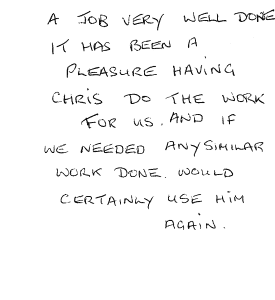 A JOB VERY WELL DONE
IT HAS BEEN A
PLEASURE HAVING
CHRIS DO THE WORK
FOR US. AND IF
WE NEEDED ANY SIMILAR
WORK DONE. WOULD
CERTAINLY USE HIM
AGAIN.